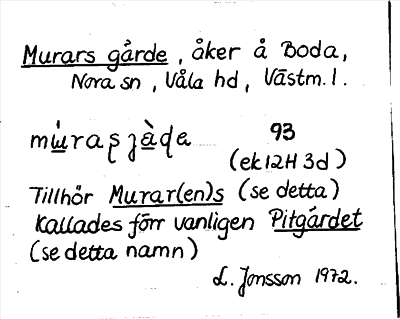 Murars gårde, åker å Boda,
Nora sn, Våla hd, Västm. l.
mu̍ras̡ jàḍa 93
(ek 12H 3d)
Tillhör Murar(en)s (se detta)
Kallades förr vanligen Pitgärdet
(se detta namn)
L. Jonsson 1972.